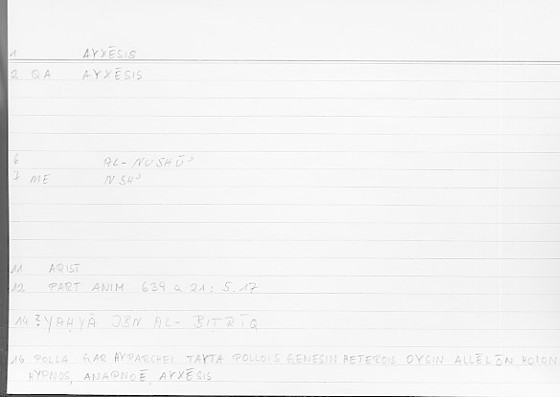 1 AYXĒSIS
2 QA AYXĒSIS
6 AL-NUSHŪʾ
7 ME NSHʾ
11 ARIST
12 PART ANIM 639 a 21; 5.17
14 ? YAḤYĀ IBN AL-BIṬRĪQ
16 POLLA GAR HYPARCHEI TAYTA POLLOIS GENESIN HETEROIS OYSIN ALLĒLŌN HOION
HYPNOS, ANAPNOĒ, AYXĒSIS